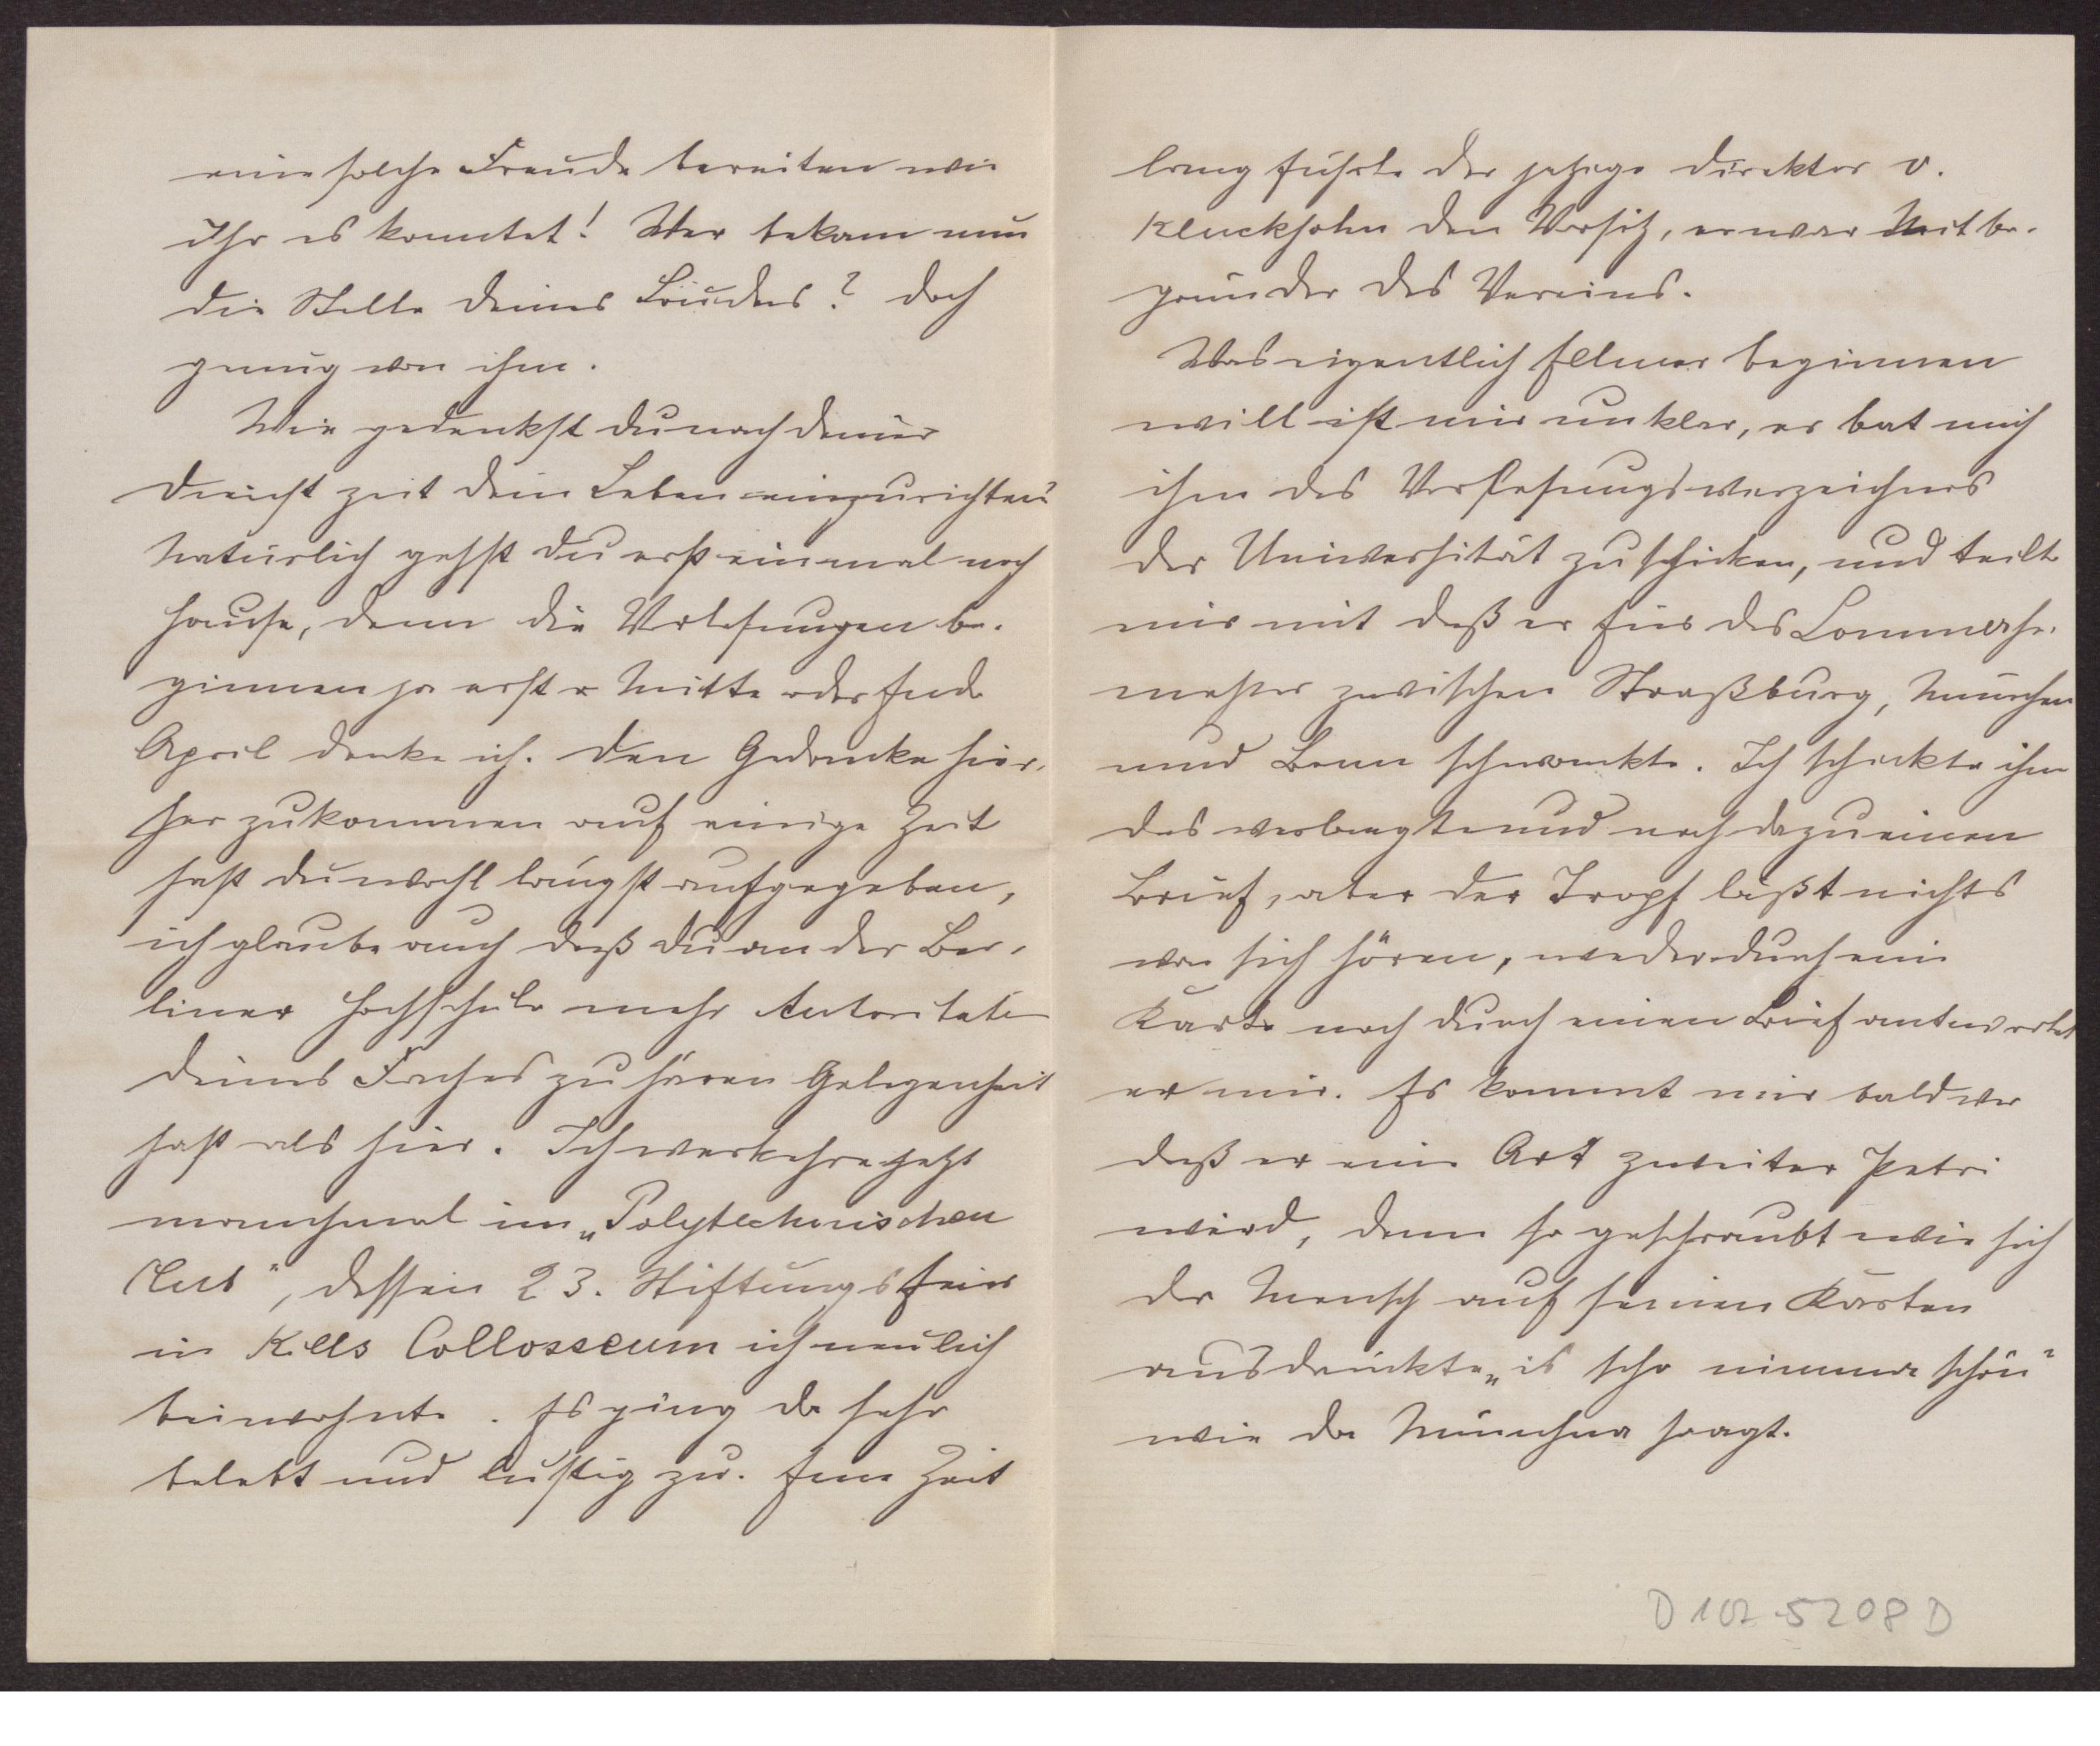 eine solche Freude bereiten wie
Ihr es konntet! Wer bekam nun
die Stelle deines Bruders? Doch
genug von ihm.
Wie gedenkst du nach deiner
Dienstzeit dein Leben einzurichten?
Natürlich gehst du erst einmal nach
Hause, denn die Vorlesungen be-
ginnen ja erst Mitte oder Ende
April denke ich. Den Gedanke hier-
her zukommen auf einige Zeit
hast du wohl längst aufgegeben,
ich glaube auch daß du an der Ber-
liner Hochschule mehr Autoritäten
deines Faches zu hören Gelegenheit
hast als hier. Ich verkehre jetzt
manchmal im „Polytechnischen
Club", dessen 23. Stiftungsfeier
in Kells Collosseum ich neulich
beiwohnte. Es ging da sehr
belebt und lustig zu. Eine Zeit
lang führte der jetzige Direktor v.
Kluckhohn den Vorsitz, er war Mitbe-
gründer des Vereins.
Was eigentlich Ellmer beginnen
will ist mir unklar, er bat mich
ihm das Vorlesungsverzeichnis
der Universität zu schicken, und teilte
mir mit daß er für das Sommerse-
mester zwischen Straßburg, München
und Bonn schwankte. Ich schickte ihm
das verlangte und noch dazu einen
Brief, aber der Tropf läßt nichts
von sich hören, weder durch eine
Karte noch durch einen Brief antwortet
er mir. Es kommt mir bald vor
daß er eine Art zweiter Petri
wird, denn so geschraubt wie sich
der Mensch auf seinen Karten
ausdrückte „is scho nimmer schön"
wie der Münchner sagt.
D 102-5208 D